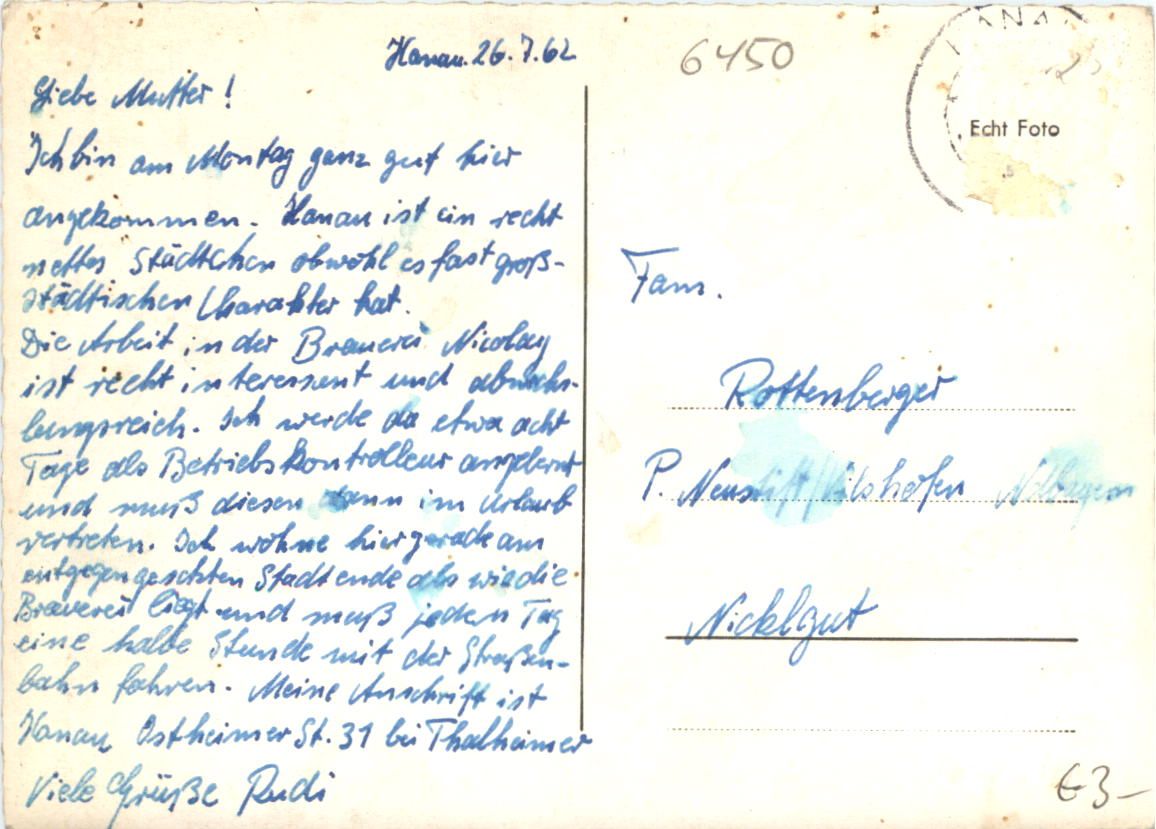 Hanau. 26.7.62
Liebe Mutter!
Ich bin am Montag ganz gut hier
angekommen. Hanau ist ein recht
nettes Städtchen obwohl es fast groß-
städtischen Charakter hat.
Die Arbeit in der Brauerei Nicolay
ist recht interessant und abwechs-
lungsreich. Ich werde da etwa acht
Tage als Betriebskontrolleur angelernt
und muß diesen dann im Urlaub
vertreten. Ich wohne hier gerade am
entgegengesetzten Stadtende als wie die
Brauerei liegt und muß jeden Tag
eine halbe Stunde mit der Straßen-
bahn fahren. Meine Anschrift ist
Hanau Ostheimer St. 31 bei Thalheimer
Viele Grüße Rudi
6450
HANA
Echt Foto
Fam.
Rottenberger
P. Neustift/Vilshofen Ndbayern
Nicklgut
€3-